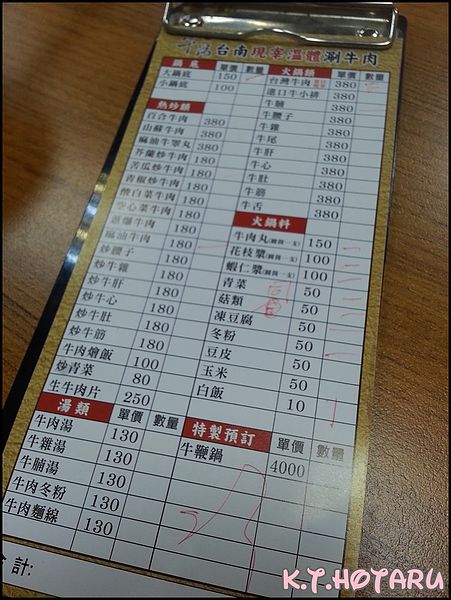 台南現宰溫體涮牛肉
鍋底 單價 數量
大鍋底 150
小鍋底 100
熱炒類
百合牛肉 380
山蘇牛肉 380
麻油牛睪丸 380
芥蘭炒牛肉 180
苦瓜炒牛肉 180
青椒炒牛肉 180
酸白菜牛肉 180
空心菜牛肉 180
蔥爆牛肉 180
麻油牛肉 180
炒腰子 180
炒牛雜 180
炒牛肝 180
炒牛心 180
炒牛肚 180
炒牛筋 180
牛肉燴飯 100
炒青菜 80
生牛肉片 250
湯類 單價 數量
牛肉湯 130
牛雜湯 130
牛腩湯 130
牛肉冬粉 130
牛肉麵線 130
合計:
火鍋類 單價 數量
台灣牛肉 380
進口牛小排 380
牛腩 380
牛腰子 380
牛雜 380
牛尾 380
牛肝 380
牛心 380
牛肚 380
牛筋 380
牛舌 380
火鍋料
牛肉丸 150
花枝漿 100
蝦仁漿 100
青菜 50
菇類 50
凍豆腐 50
冬粉 50
豆皮 50
玉米 50
白飯 10
特製預訂 單價 數量
牛鞭鍋 4000
K.T.HOTARU